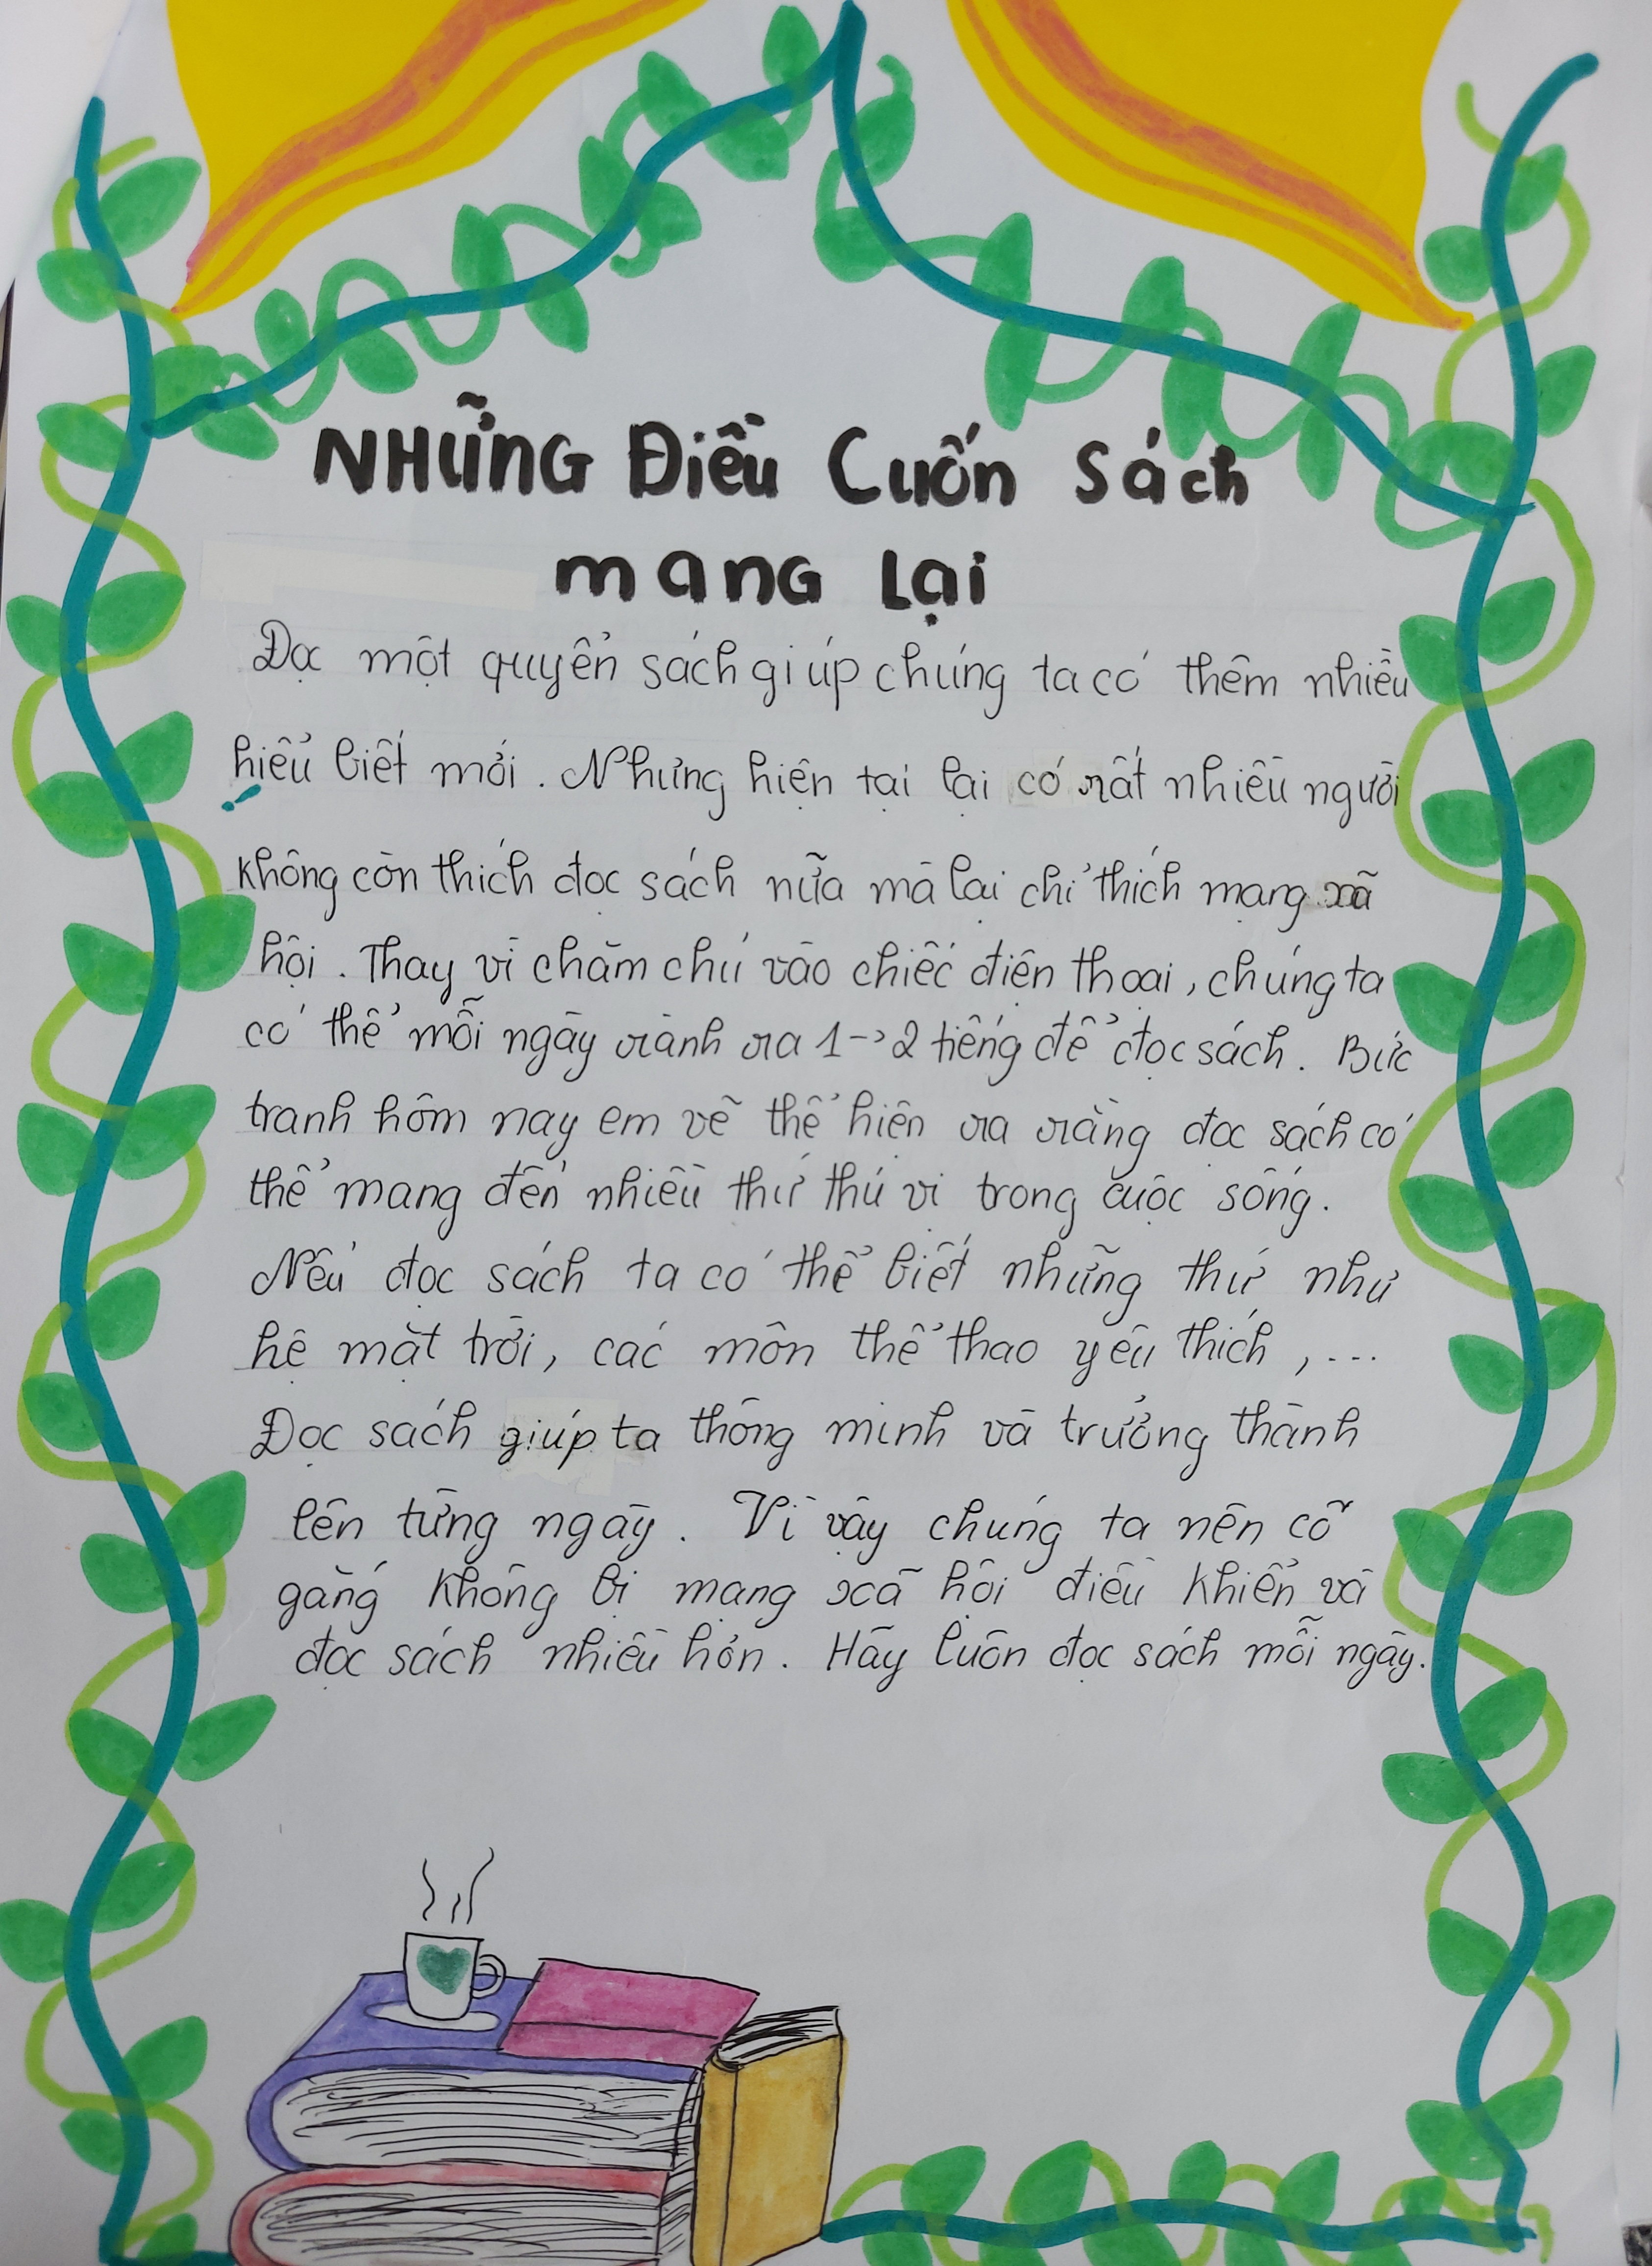 NHỮNG Điều Cuốn Sách
mang Lại
Đọc một quyển sách giúp chúng ta có thêm nhiều
hiểu biết mới. Nhưng hiện tại lại có rất nhiều người
không còn thích đọc sách nữa mà lại chỉ thích mạng xã
hội. Thay vì chăm chú vào chiếc điện thoại, chúng ta
có thể mỗi ngày rành ra 1->2 tiếng để đọc sách. Bức
tranh hôm nay em vẽ thể hiện ra rằng đọc sách có
thể mang đến nhiều thứ thú vị trong cuộc sống.
Nếu đọc sách ta có thể biết những thứ như
hệ mặt trời, các môn thể thao yêu thích, ...
Đọc sách giúp ta thông minh và trưởng thành
lên từng ngày. Vì vậy chúng ta nên cỗ
gắng không bị mạng xã hội điều khiển và
đọc sách nhiều hơn. Hãy luôn đọc sách mỗi ngày.